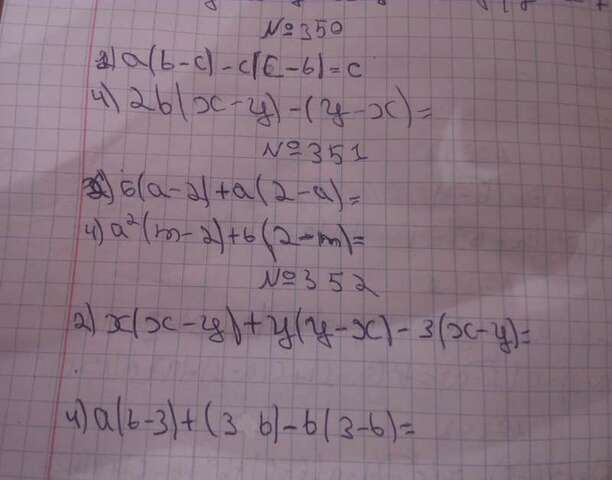 №350
2) a(b-c)-c(c-b)=c
4) 2b(x-y)-(y-x)=
№351
2) 6(a-2)+a(2-a)=
4) a²(m-2)+b(2-m)=
№352
2) x(x-y)+y(y-x)-3(x-y)=
4) a(b-3)+(3 b)-b(3-b)=